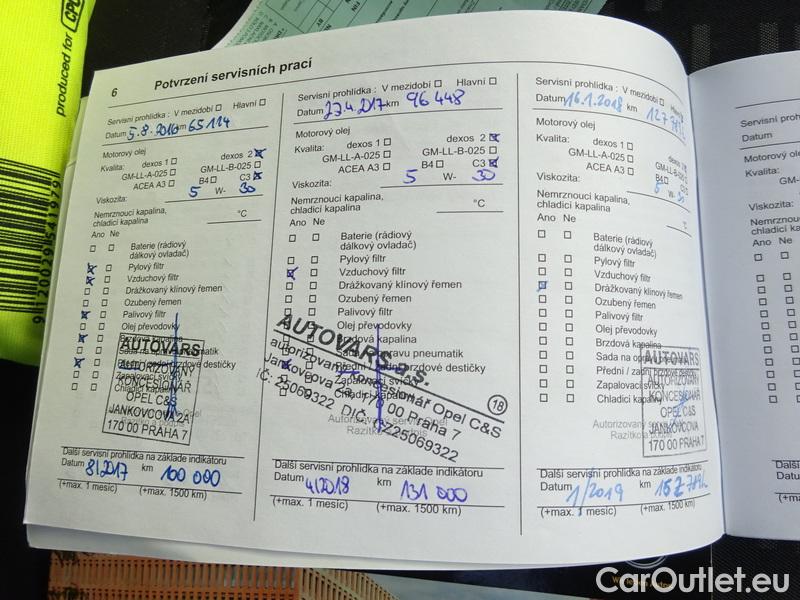 produced for CPC
9120029541979
6
Potvrzení servisních prací
Servisní prohlídka : V mezidobí Hlavní
Datum 5.8.2016 km 65 114
Motorový olej
Kvalita: dexos 1 dexos 2
GM-LL-A-025 GM-LL-B-025
ACEA A3 B4 C3
Viskozita: 5 W- 30
Nemrznoucí kapalina,
chladicí kapalina °C
Ano Ne
Baterie (rádiový
dálkový ovladač)
Pylový filtr
Vzduchový filtr
Drážkovaný klínový řemen
Ozubený řemen
Palivový filtr
Olej převodovky
Brzdová kapalina
Sada na opravu pneumatik
Přední / zadní brzdové destičky
Zapalovací svíčky
Chladicí kapalina
AUTOVARS
AUTORIZOVANÝ
KONCESIONÁŘ
OPEL C&S
JANKOVCOVA 2A
170 00 PRAHA 7
Další servisní prohlídka na základe indikátoru
Datum 8/2017 km 100 000
(+max. 1 mesíc) (+max. 1500 km)
Servisní prohlídka : V mezidobí Hlavní
Datum 27.4.2017 km 96 448
Motorový olej
Kvalita: dexos 1 dexos 2
GM-LL-A-025 GM-LL-B-025
ACEA A3 B4 C3
Viskozita: 5 W- 30
Nemrznoucí kapalina,
chladicí kapalina °C
Ano Ne
Baterie (rádiový
dálkový ovladač)
Pylový filtr
Vzduchový filtr
Drážkovaný klínový řemen
Ozubený řemen
Palivový filtr
Olej převodovky
Brzdová kapalina
Sada na opravu pneumatik
Přední / zadní brzdové destičky
Zapalovací svíčky
Chladicí kapalina
AUTOVARS a.s.
autorizovaný koncesionář Opel C&S
Jankovcova 2a, 170 00 Praha 7
IČ: 25069322 DIČ: CZ25069322
18
Autorizovaný servisní Opel
Razítko a podpis
Další servisní prohlídka na základe indikátoru
Datum 4/2018 km 131 000
(+max. 1 mesíc) (+max. 1500 km)
Servisní prohlídka : V mezidobí Hlavní
Datum 16.1.2018 km
Motorový olej
Kvalita: dexos 1 dexos 2
GM-LL-A-025 GM-LL-B-025
ACEA A3 B4 C3
Viskozita: 5 W- 30
Nemrznoucí kapalina,
chladicí kapalina °C
Ano Ne
Baterie (rádiový
dálkový ovladač)
Pylový filtr
Vzduchový filtr
Drážkovaný klínový řemen
Ozubený řemen
Palivový filtr
Olej převodovky
Brzdová kapalina
Sada na opravu pneumatik
Přední / zadní brzdové destičky
Zapalovací svíčky
Chladicí kapalina
AUTOVARS
AUTORIZOVANÝ
KONCESIONÁŘ
OPEL C&S
JANKOVCOVA
170 00 PRAHA 7
Další servisní prohlídka na základe indikátoru
Datum 1/2019 km
(+max. 1 mesíc) (+max. 1500 km)
Servisní
Datum
Motorový olej
Kvalita:
Viskozita:
Nemrznoucí
chladicí kapalina
Ano Ne
Další
Datum
(+max.
CarOutlet.eu